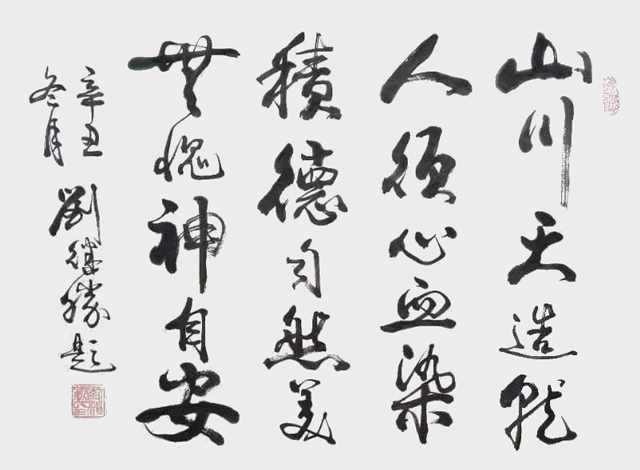 山川天造就
人须心血染
積德自然美
無愧神自安
辛丑
冬月
劉继勝题